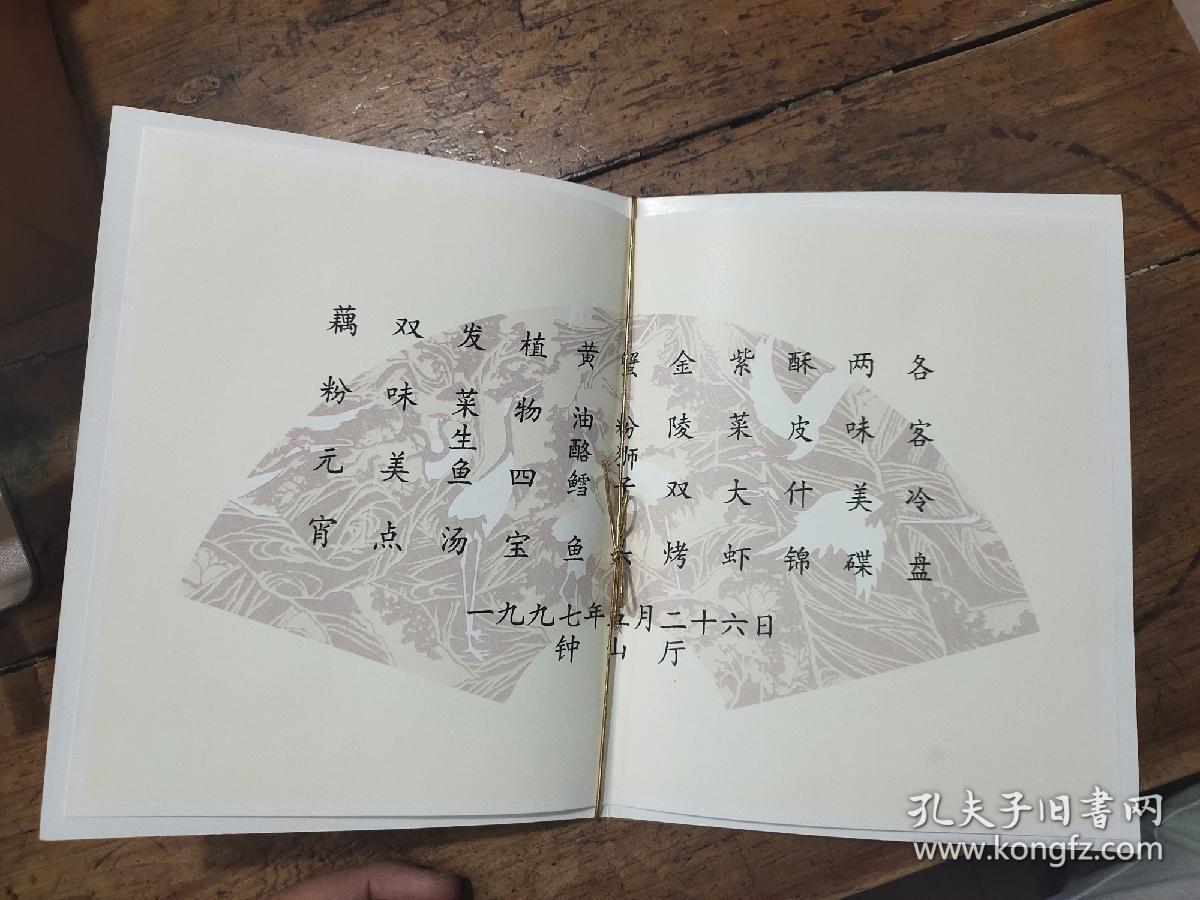 各客冷盘
两味美碟
酥皮什锦
紫菜大虾
金陵双烤
蟹粉狮子头
黄油酪鳕鱼
植物四宝
发菜生鱼汤
双味美点
藕粉元宵
一九九七年五月二十六日
钟山厅
孔夫子旧书网
www.kongfz.com